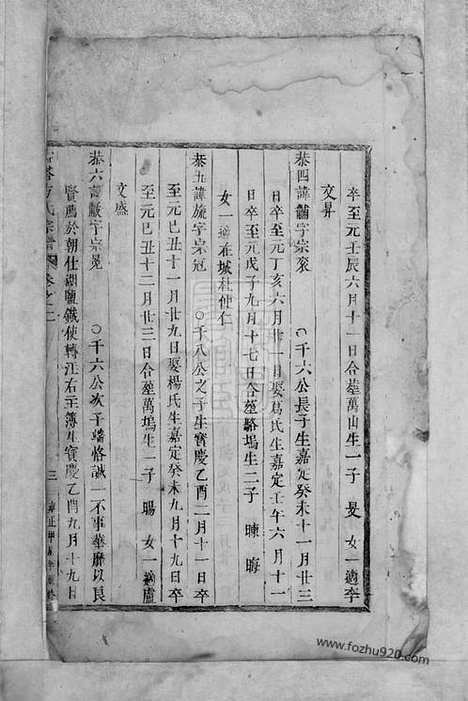 卒至元壬辰六月十一日合塟萬山生一子 旻 女一適李
文昇
恭四諱黼字宗袞 ○千六公長子生嘉定癸未十一月廿三
日卒至元丁亥六月廿一日娶葛氏生嘉定壬午六月十一
日卒至元戊子九月十七日合塟駱塢生二子 暕 晦
女一適在城杜使仁
恭五諱旒字宗冠 ○千八公之子生寶慶乙酉二月十一日卒
至元已丑十一月廿九日娶楊氏生嘉定癸未九月十九日卒
至元已丑十二月廿三日合塟萬塢生一子 暘 女一適盧
文盛
恭六諱黻字宗冕 ○千六公次子 恪誠一不事華靡以良
賢薦於朝仕 鹽鐵使轉江右主簿生寶慶乙酉九月十九日
方氏宗譜 卷之二
三
www.fozhu920.com